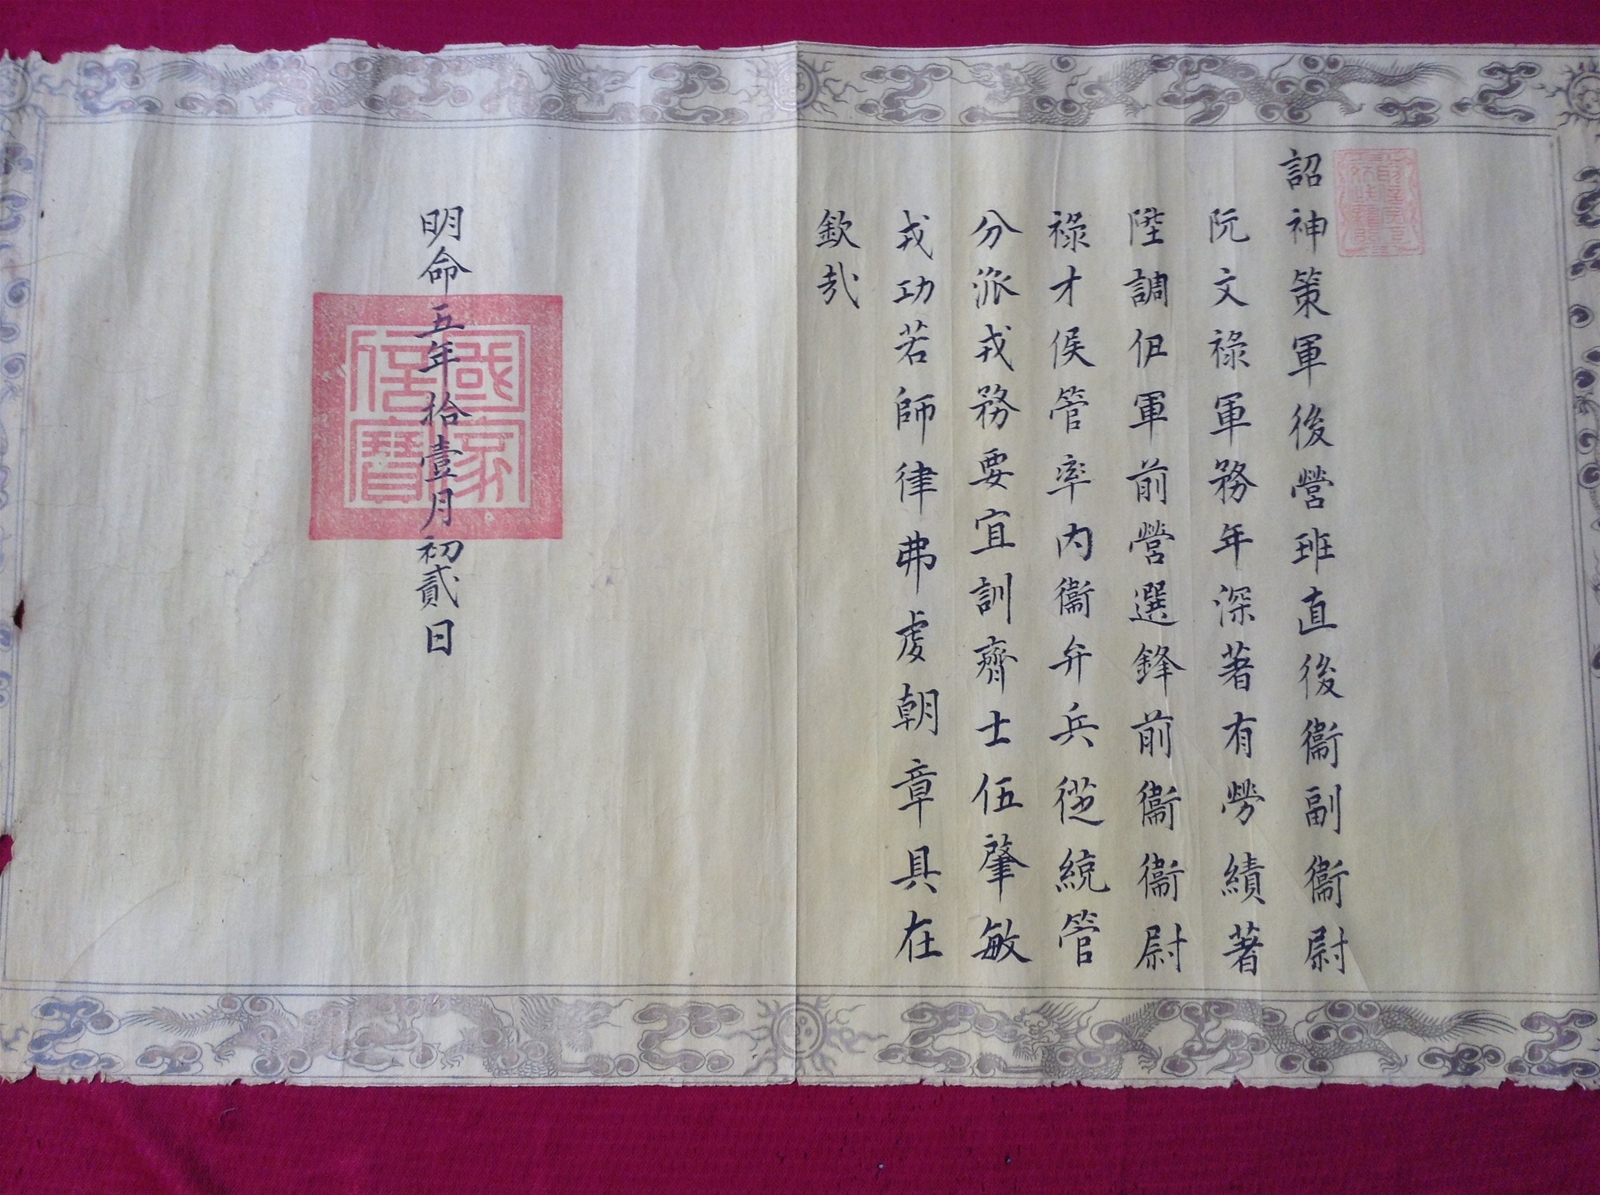 詔神策軍後營班直後衞副衞尉
阮文祿軍務年深著有勞績著
陞調伹軍前營選鋒前衞衞尉
祿才侯管率内衞弁兵從統管
分派戎務要宜訓齊士伍肇敏
戎功若師律弗虔朝章具在
欽哉
明命五年拾壹月初貳日
國家信寶